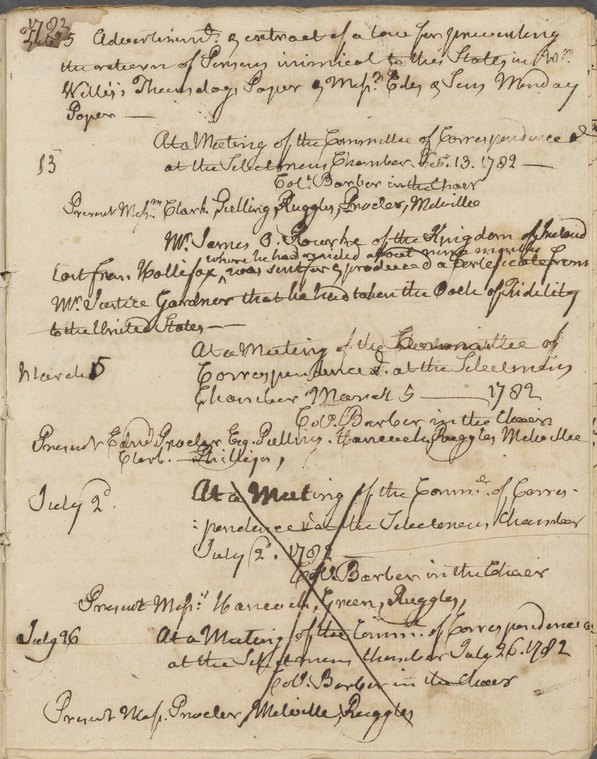 1782
Advertisemt. & extract of a law for preventing
the return of Persons inimical to this State in Wm.
Willis's Thursdays Paper & Messrs. Edes & Sons Monday
Paper —
At a Meeting of the Committee of Correspondence &
13 at the Selectmens Chamber Feb. 13. 1782 —
Colo. Barber in the Chair
Present Messrs. Clark, Pulling, Ruggles, Procter, Melville
Mr. James O. Rourke of the Kingdom of Ireland
where he had resided about nine months
Last from Hallifax ^ was sent for & produced a Certificate from
Mr. Justice Gardner that he had taken the Oath of Fidelity
to the United States —
At a Meeting of the Committee of
March 5 Correspondence &c. at the Selectmens
Chamber March 5 — 1782
Colo. Barber in the Chair
Present Edwd. Procter Esq. Pulling. Hancock, Ruggles Melville
Clark — Phillips,
At a Meeting of the Comme. of Corres-
July 2d. :pondence & at the Selectmens Chamber
July 2d. 1782 —
Colo. Barber in the Chair
Present Messrs. Hancock, Green, Ruggles,
July 26 At a Meeting of the Comme. of Correspondence &
at the Selectmens Chamber July 26. 1782
Colo. Barber in the Chair
Present Mess. Procter, Melville, Ruggles